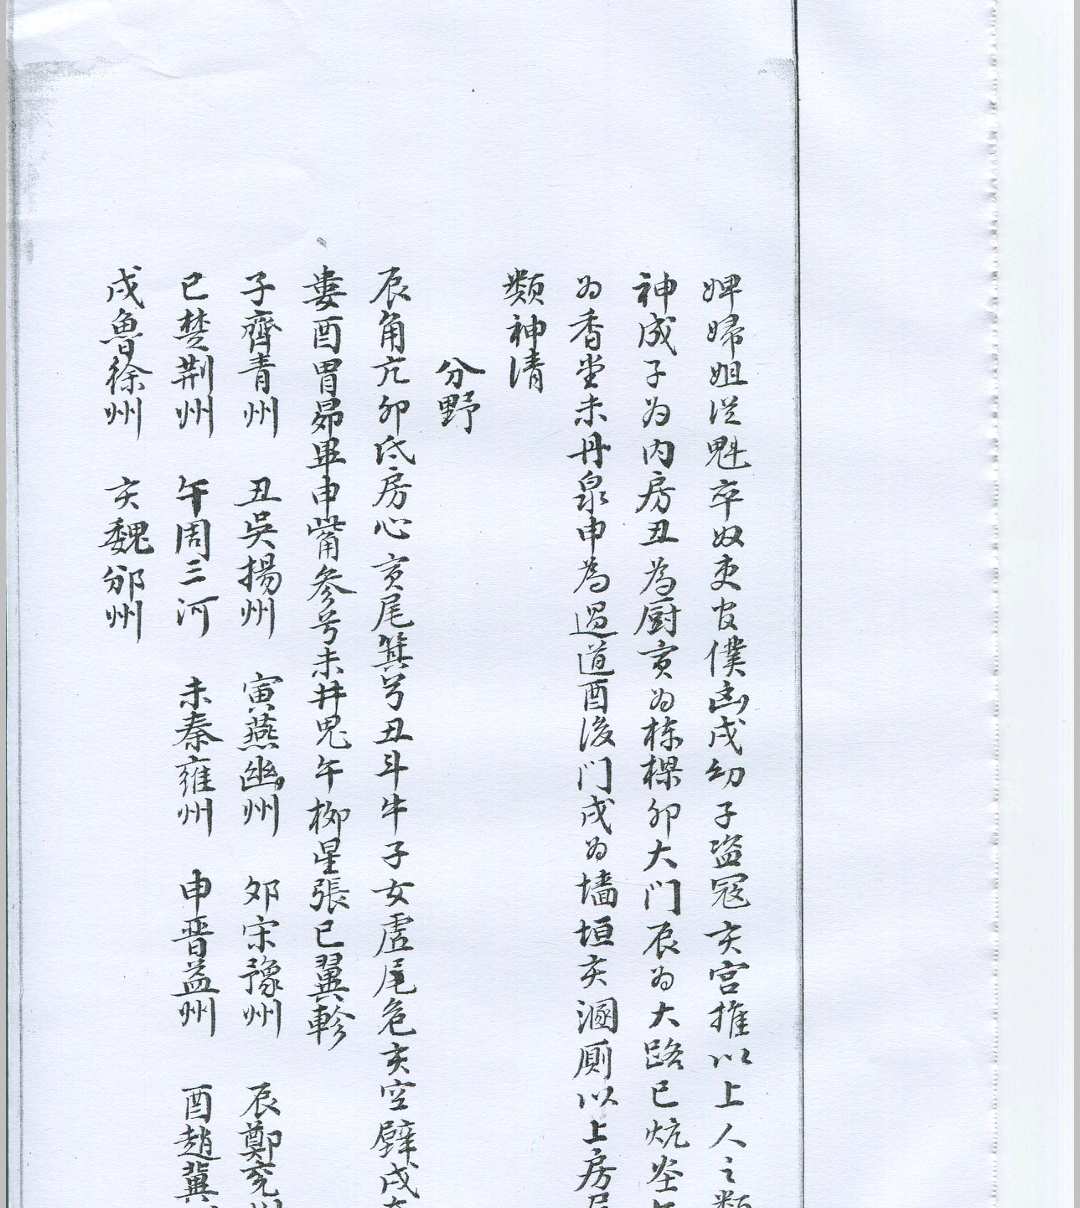 婢婦姐从魁卒奴吏官僕酉戌幼子盗冦亥宫推以上人之類
神成子为内房丑為厨寅为栋樑卯大门辰为大路已炕坐
为香堂未丹泉申為過道酉後门戌为墙垣亥溷厕以上房屋
類神清
分野
辰角亢卯氐房心寅尾箕兮丑斗牛子女虚尾危亥室壁戌
婁酉胃昴畢申觜参兮未井鬼午柳星張已翼軫
子齊青州 丑吳揚州 寅燕幽州 卯宋豫州 辰鄭兖州
已楚荆州 午周三河 未秦雍州 申晋益州 酉趙冀
戌魯徐州 亥魏邠州